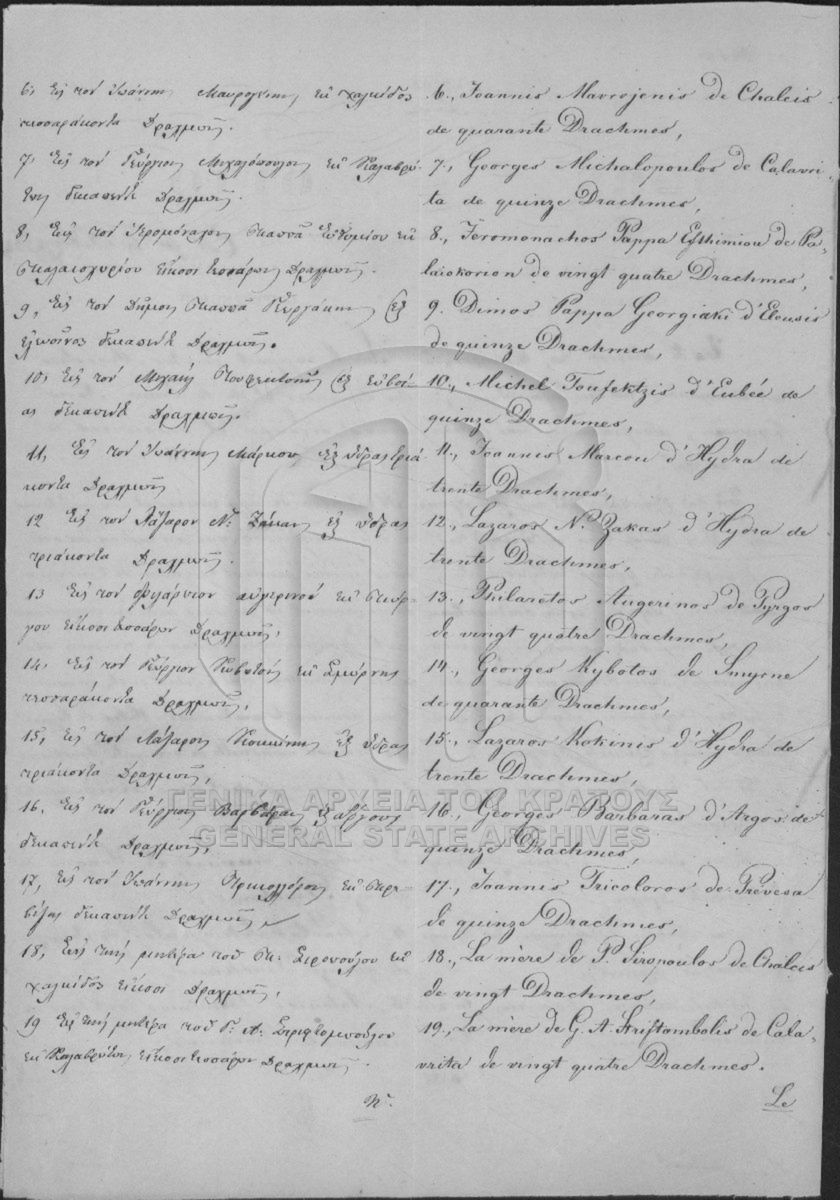 6, Εἰς τὸν Ἰωάννην Μαυρογένην ἐκ Χαλκίδος
τεσσαράκοντα Δραχμῶν.
7, Εἰς τὸν Γεώργιον Μιχαλόπουλον ἐκ Καλαβρύ-
των δεκαπέντε Δραχμῶν.
8, Εἰς τὸν Ἱερομόναχον Παππᾶ Εὐθυμίου ἐκ
εἴκοσι τεσσάρων Δραχμῶν.
9, Εἰς τὸν Δῆμον Παππᾶ Γεωργάκη ἐξ
Ἐλευσῖνος δεκαπέντε Δραχμῶν.
10, Εἰς τὸν Μιχαὴλ Τουφεκτσῆν ἐξ Εὐβοί-
ας δεκαπέντε Δραχμῶν.
11, Εἰς τὸν Ἰωάννην Μάρκου ἐξ Ὕδρας τριά-
κοντα Δραχμῶν
12 Εἰς τὸν Λάζαρον Ν. Ζάκαν ἐξ Ὕδρας
τριάκοντα Δραχμῶν.
13 Εἰς τὸν Φιλάρετον Αὐγερινοῦ ἐκ Πύρ-
γου εἴκοσι τεσσάρων Δραχμῶν,
14, Εἰς τὸν Γεώργιον Κυβωτὸν ἐκ Σμύρνης
τεσσαράκοντα Δραχμῶν,
15, Εἰς τὸν Λάζαρον Κοκκίνην ἐξ Ὕδρας
τριάκοντα Δραχμῶν,
16. Εἰς τὸν Γεώργιον Βαρβάραν ἐξ Ἄργους
δεκαπέντε Δραχμῶν,
17, Εἰς τὸν Ἰωάννην Τρικολλόρον ἐκ Πρε-
βέζας δεκαπέντε Δραχμῶν,
18, Εἰς τὴν μητέρα τοῦ Π. Σιροπούλου ἐκ
Χαλκίδος εἴκοσι Δραχμῶν,
19 Εἰς τὴν μητέρα τοῦ Γ. Α.
ἐκ Καλαβρύτων εἴκοσι τεσσάρων Δραχμῶν.
6., Ioannis Mavrojenis de Chalcis
de quarante Drachmes,
7., Georges Michalopoulos de Calavri-
ta de quinze Drachmes,
8., Jeromonachos Pappa Efthimiou de Pa-
laiokorion de vingt quatre Drachmes,
9. Dimos Pappa Georgiaki d'Eleusis
de quinze Drachmes,
10., Michel Toufektzis d'Eubée de
quinze Drachmes,
11., Ioannis Marcou d'Hydra de
trente Drachmes,
12., Lazaros N. Zakas d'Hydra de
trente Drachmes,
13., Philaretos Augerinos de Pyrgos
de vingt quatre Drachmes,
14., Georges Kybotos de Smyrne
de quarante Drachmes,
15., Lazaros Kokinis d'Hydra de
trente Drachmes,
16., Georges Barbaras d'Argos de
quinze Drachmes,
17., Ioannis Tricoloros de Prevesa
de quinze Drachmes,
18., La mère de P. Siropoulos de Chalcis
de vingt Drachmes,
19., La mère de G. A. Striftombolis de Cala-
vrita de vingt quatre Drachmes.
Le
ΓΕΝΙΚΑ ΑΡΧΕΙΑ ΤΟΥ ΚΡΑΤΟΥΣ
GENERAL STATE ARCHIVES